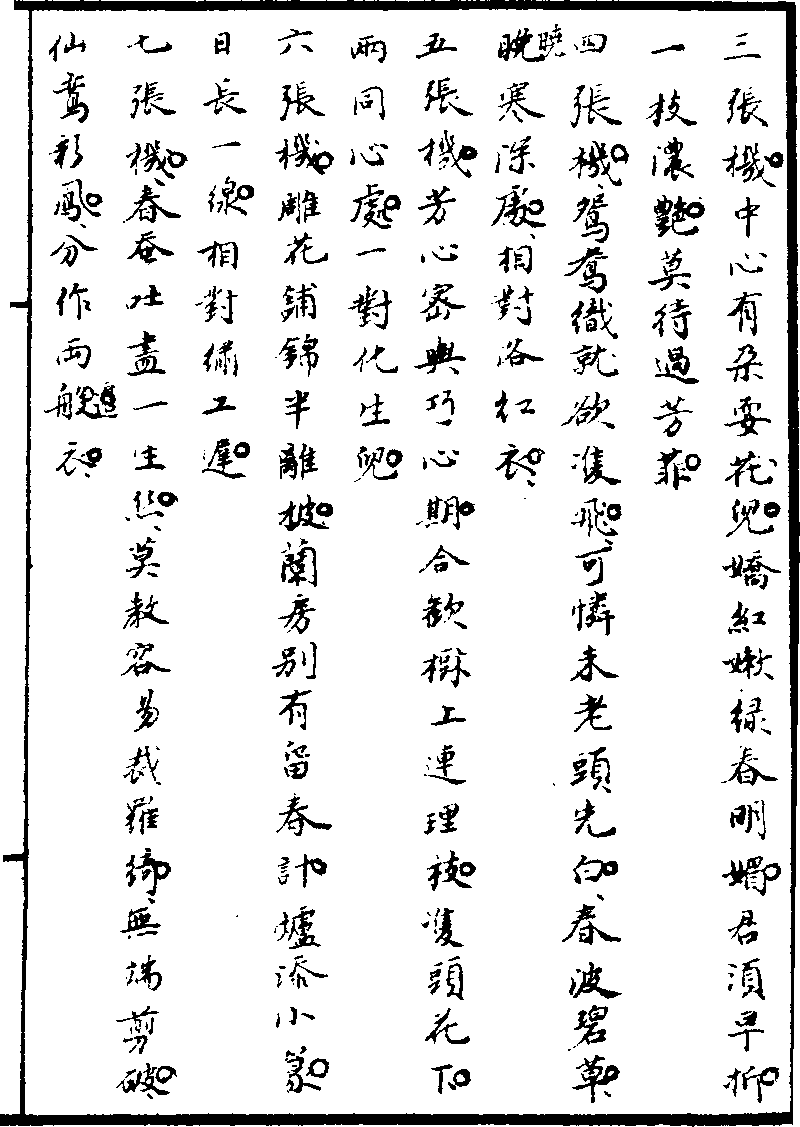 三張機中心有朵耍花兒嬌紅嫩綠春明媚君須早折
一枝濃艷莫待過芳菲
四張機鴛鴦織就欲雙飛可憐未老頭先白春波碧草
晚曉寒深處相對浴紅衣
五張機芳心密與巧心期合歡樹上連理枝雙頭花下
兩同心處一對化生兒
六張機雕花鋪錦半離披蘭房別有留春計爐添小篆
日長一線相對繡工遲
七張機春蚕吐盡一生絲莫教容易裁羅綺無端剪破
仙鸞彩鳳分作兩般邊衣